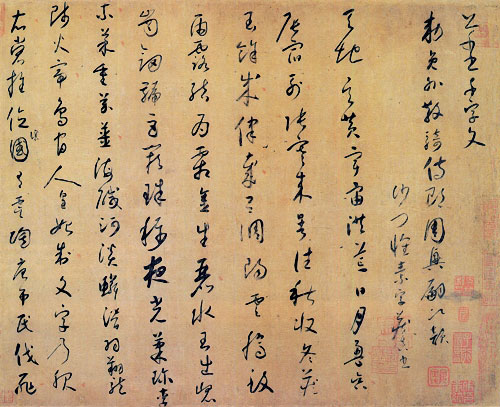 千字文
敕員外散騎侍郎周興嗣次韻
沙門懷素字藏真書
天地玄黃宇宙洪荒日月盈昃
辰宿列張寒來暑往秋收冬藏
閏餘成歲律呂調陽雲騰致
雨露結為霜金生麗水玉出崑
岡劍號巨闕珠稱夜光菓珍李
柰菜重芥薑海鹹河淡鱗潛羽翔龍
師火帝鳥官人皇始制文字乃服
衣裳推位讓國有虞陶唐弔民伐罪